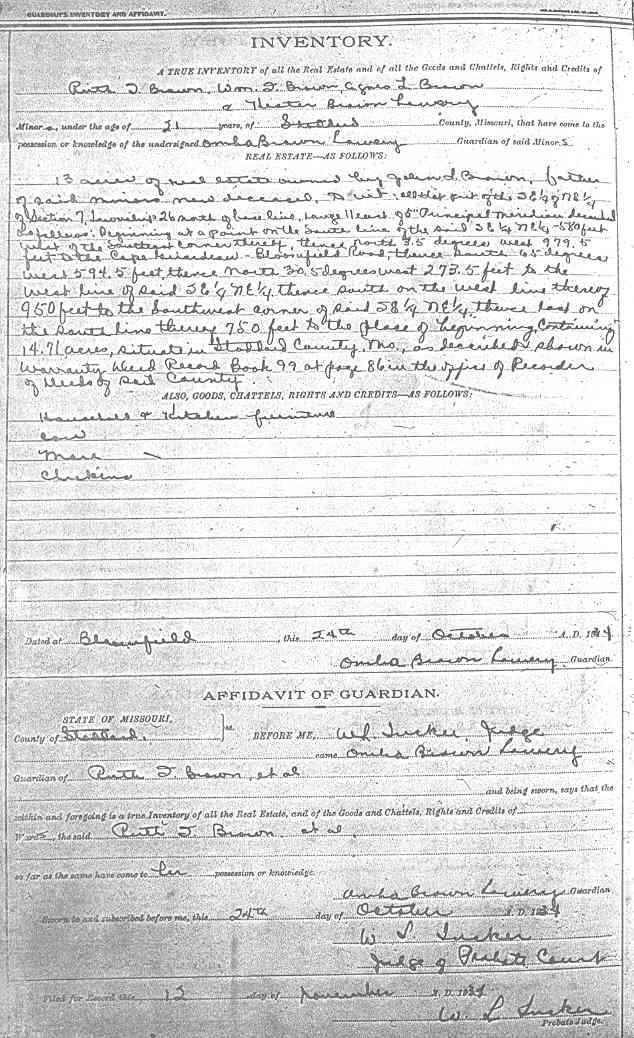 GUARDIAN'S INVENTORY AND AFFIDAVIT.
INVENTORY.
A TRUE INVENTORY of all the Real Estate and of all the Goods and Chattels, Rights and Credits of
Ruth T. Brown, Wm. T. Brown, Agnes L. Brown
& Hester Brown Lowery
Minor s, under the age of 21 years, of Stoddard County, Missouri, that have come to the
possession or knowledge of the undersigned Omba Brown Lowery Guardian of said Minor s
REAL ESTATE—AS FOLLOWS:
13 acres of real estate owned by John S. Brown, father
of said minors now deceased, to wit: all that part of the SE¼ of NE¼
of Section 7, Township 26 north of base line, range 11 east of 5th Principal meridian described
as follows: Beginning at a point on the South line of the said SE¼ NE¼ - 580 feet
west of the Southeast corner thereof, thence north 3.5 degrees west 979.5
feet to the Cape Girardeau - Bloomfield Road, thence South 65 degrees
west 594.5 feet, thence north 30.5 degrees west 273.5 feet to the
west line of said SE¼ NE¼, thence south on the west line thereof
950 feet to the Southwest corner of said SE¼ NE¼, thence East on
the south line thereof 750 feet to the place of beginning, containing
14.71 acres, situate in Stoddard County, Mo., as described & shown in
Warranty Deed Record Book 99 at page 86 in the office of Recorder
of Deeds of said County.
ALSO, GOODS, CHATTELS, RIGHTS AND CREDITS—AS FOLLOWS:
Household & Kitchen furniture
cow
Mare
Chickens
Dated at Bloomfield, this 24th day of October A. D. 19
Omba Brown Lowery Guardian.
AFFIDAVIT OF GUARDIAN.
STATE OF MISSOURI,
County of Stoddard. ss. BEFORE ME, W L Tucker, Judge
came Omba Brown Lowery
Guardian of Ruth T Brown, et al
and being sworn, says that the
within and foregoing is a true Inventory of all the Real Estate, and of the Goods and Chattels, Rights and Credits of
Wards, the said Ruth T. Brown. et al.
so far as the same have come to her possession or knowledge.
Omba Brown Lowery Guardian
Sworn to and subscribed before me, this 24th day of October A. D. 19
W L Tucker
Judge of Probate Court
Filed for Record this 12 day of November A. D. 19
W L Tucker
Probate Judge.